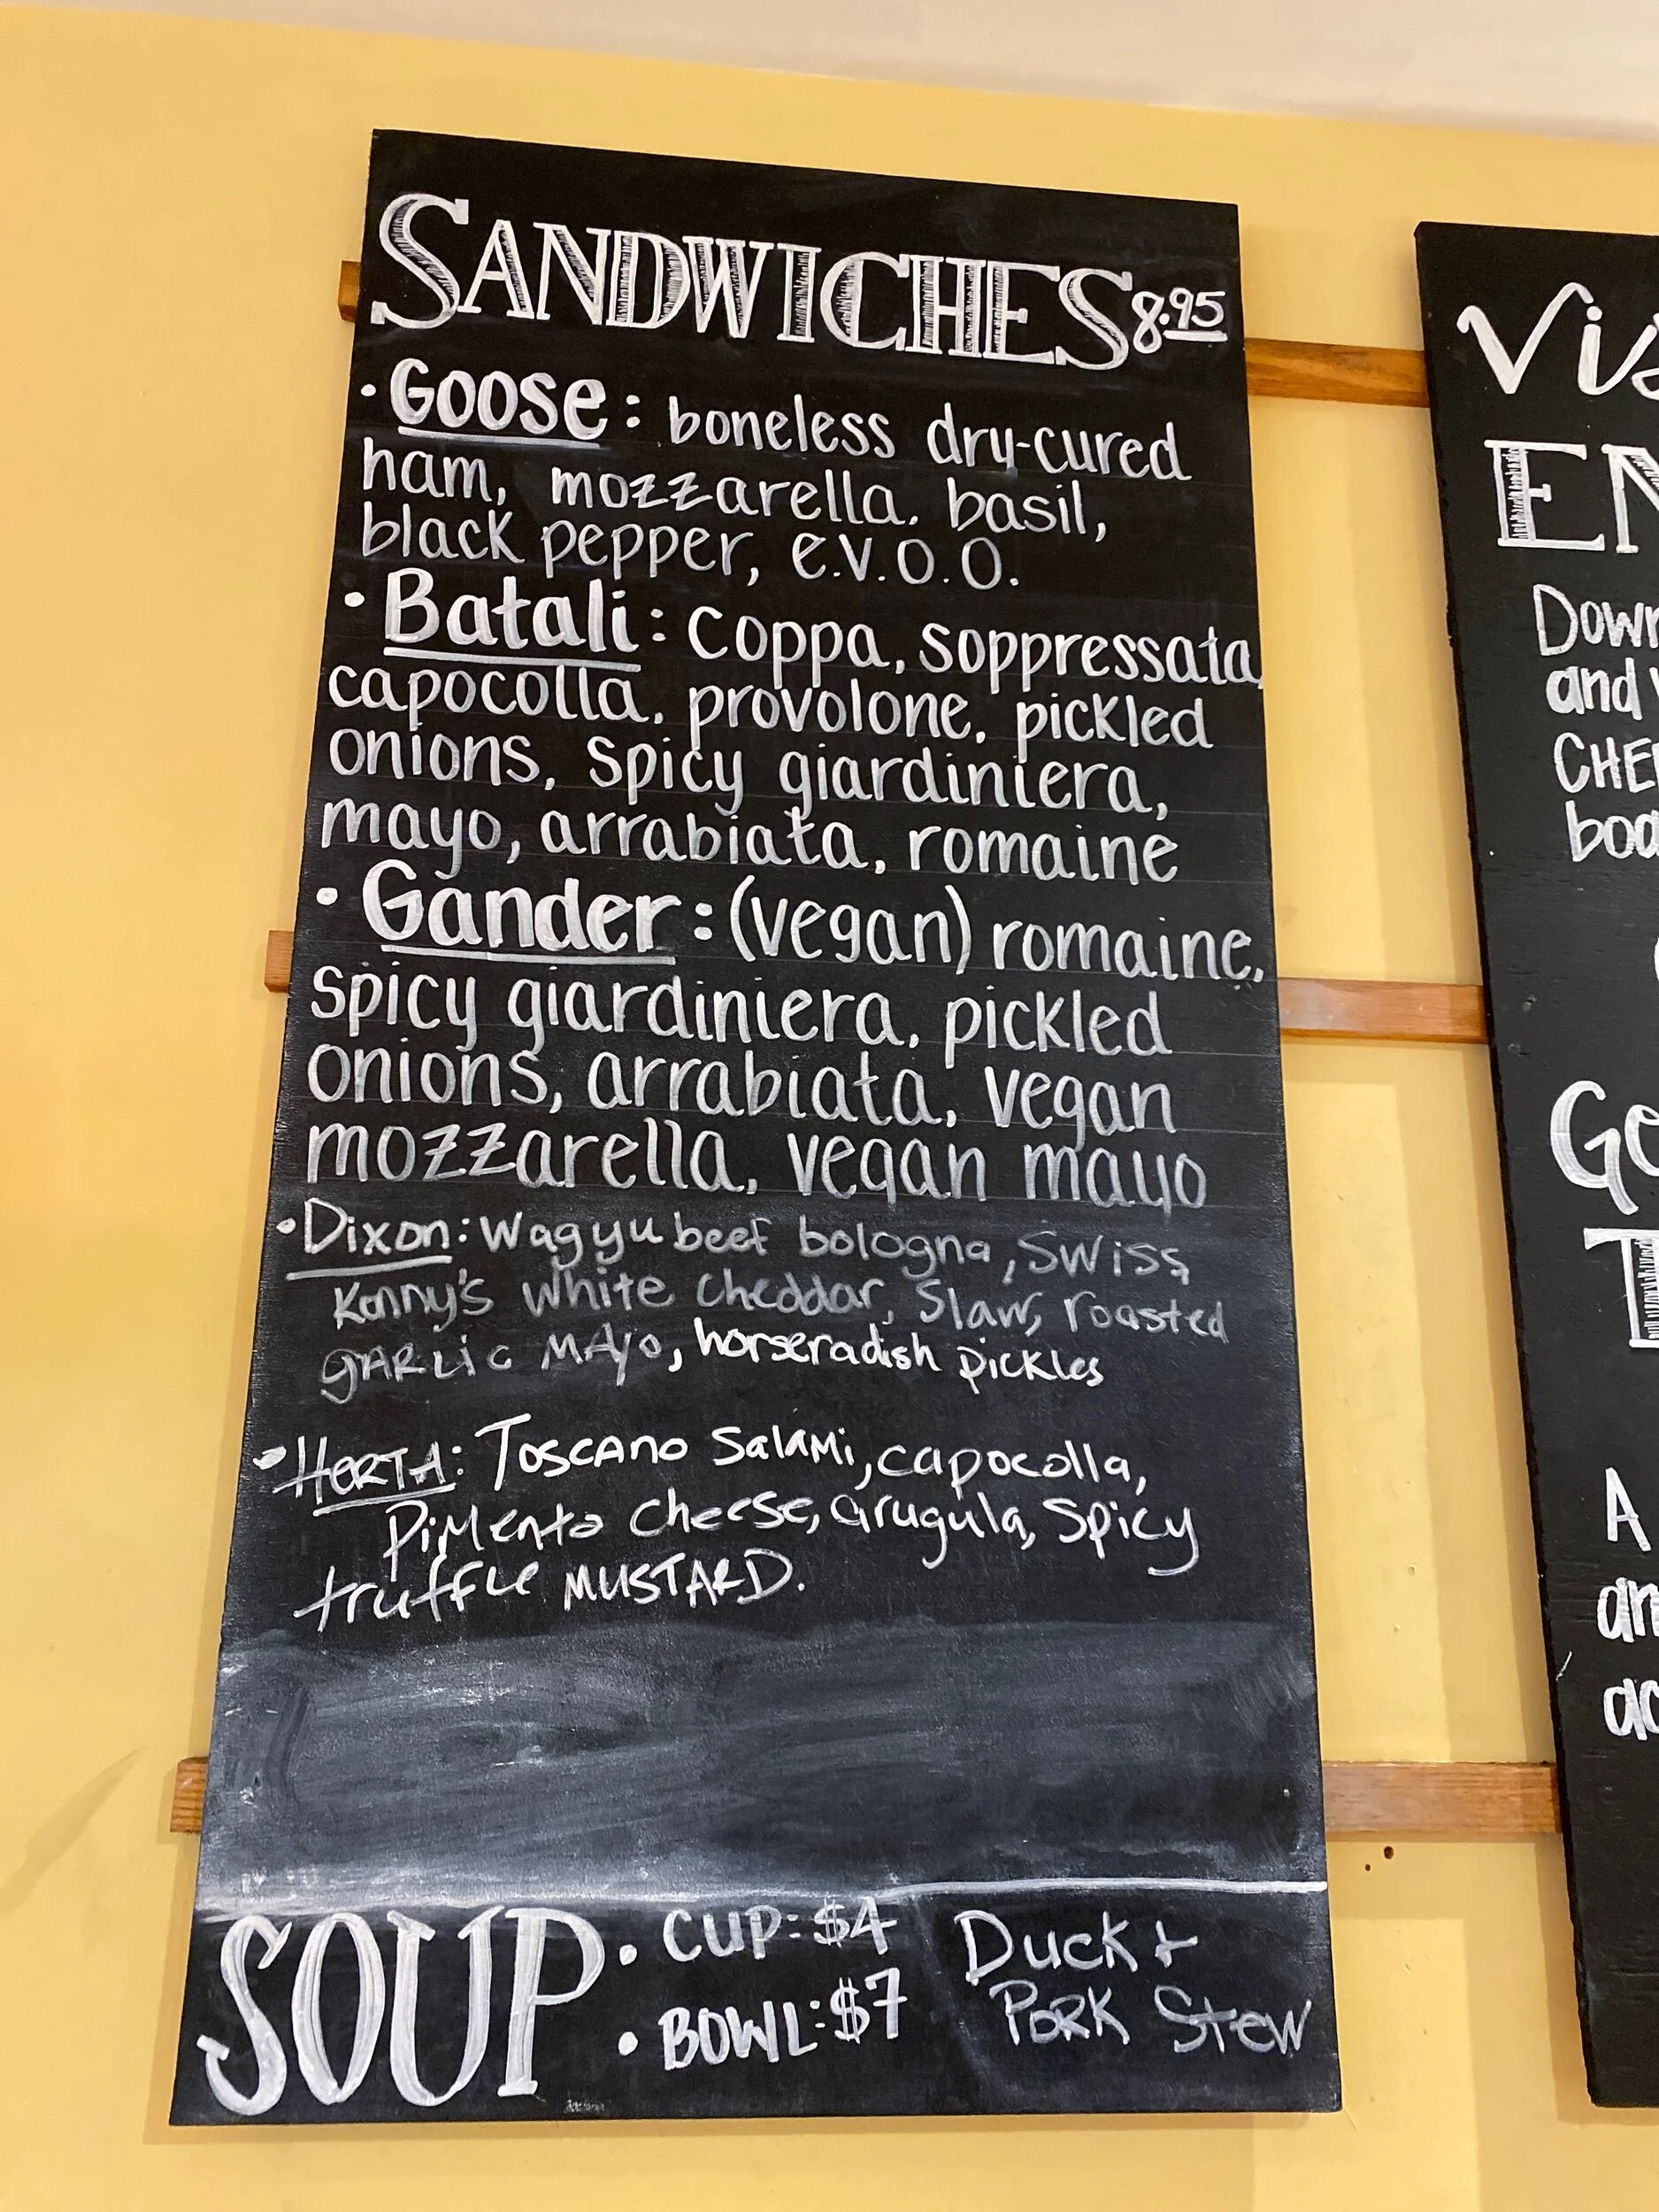 SANDWICHES 8.95
• Goose: boneless dry-cured
ham, mozzarella, basil,
black pepper, e.v.o.o.
• Batali: coppa, soppressata,
capocolla, provolone, pickled
onions, spicy giardiniera,
mayo, arrabiata, romaine
• Gander: (vegan) romaine,
spicy giardiniera, pickled
onions, arrabiata, vegan
mozzarella, vegan mayo
• Dixon: Wagyu beef bologna, Swiss,
Kenny's white cheddar, Slaw, roasted
GARLIC MAYO, horseradish pickles
• HERTA: TOSCANO SALAMI, capocolla,
PIMENTO Cheese, arugula, Spicy
truffle MUSTARD.
SOUP • CUP: $4
• BOWL: $7
Duck +
PORK Stew
Vis
EN
Down
and
CHE
boa
Ge
T
A
an
ac